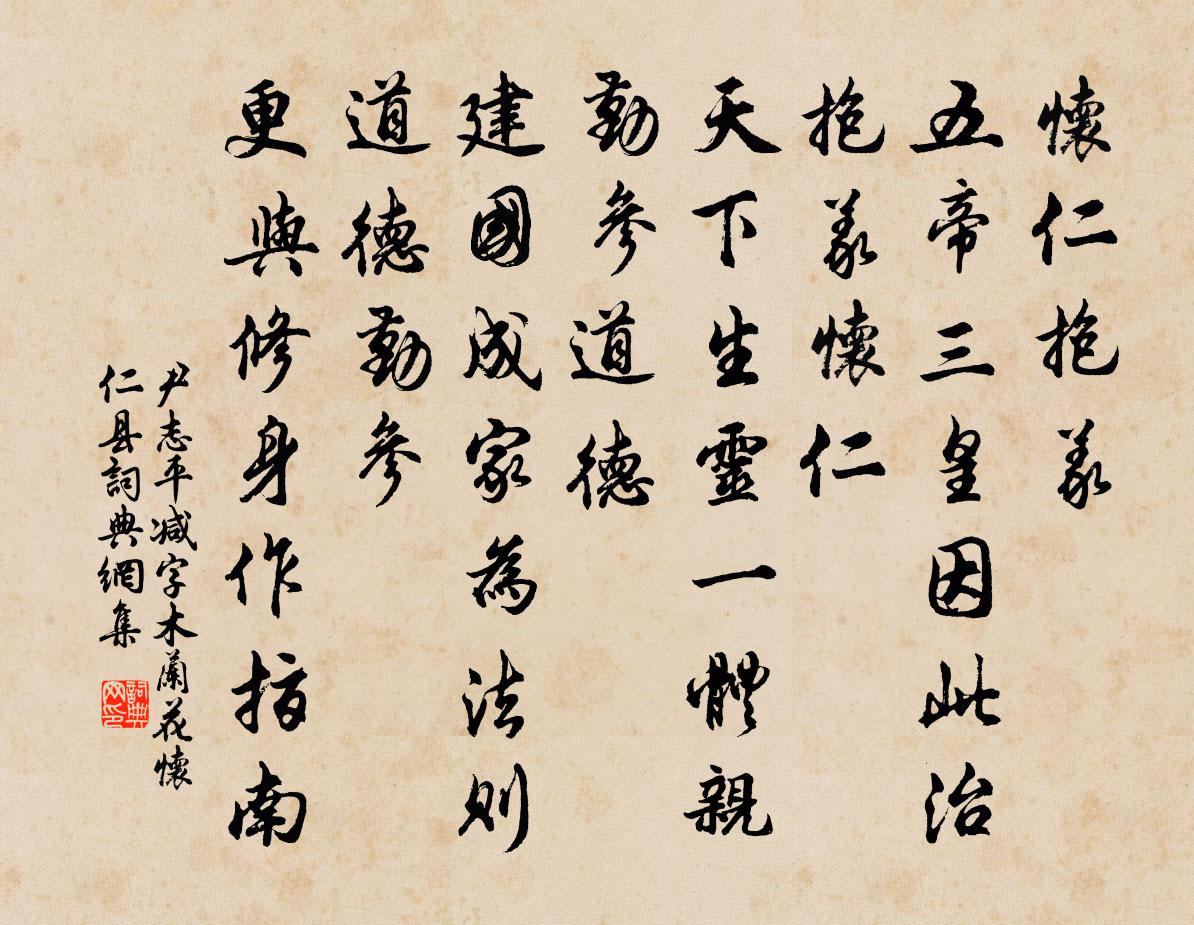 懷仁抱義
五帝三皇因此治
抱義懷仁
天下生靈一體親
勤參道德
建國成家為法則
道德勤參
更與修身作指南
尹志平减字木蘭花懷
仁县詞典網集
詞典
网印